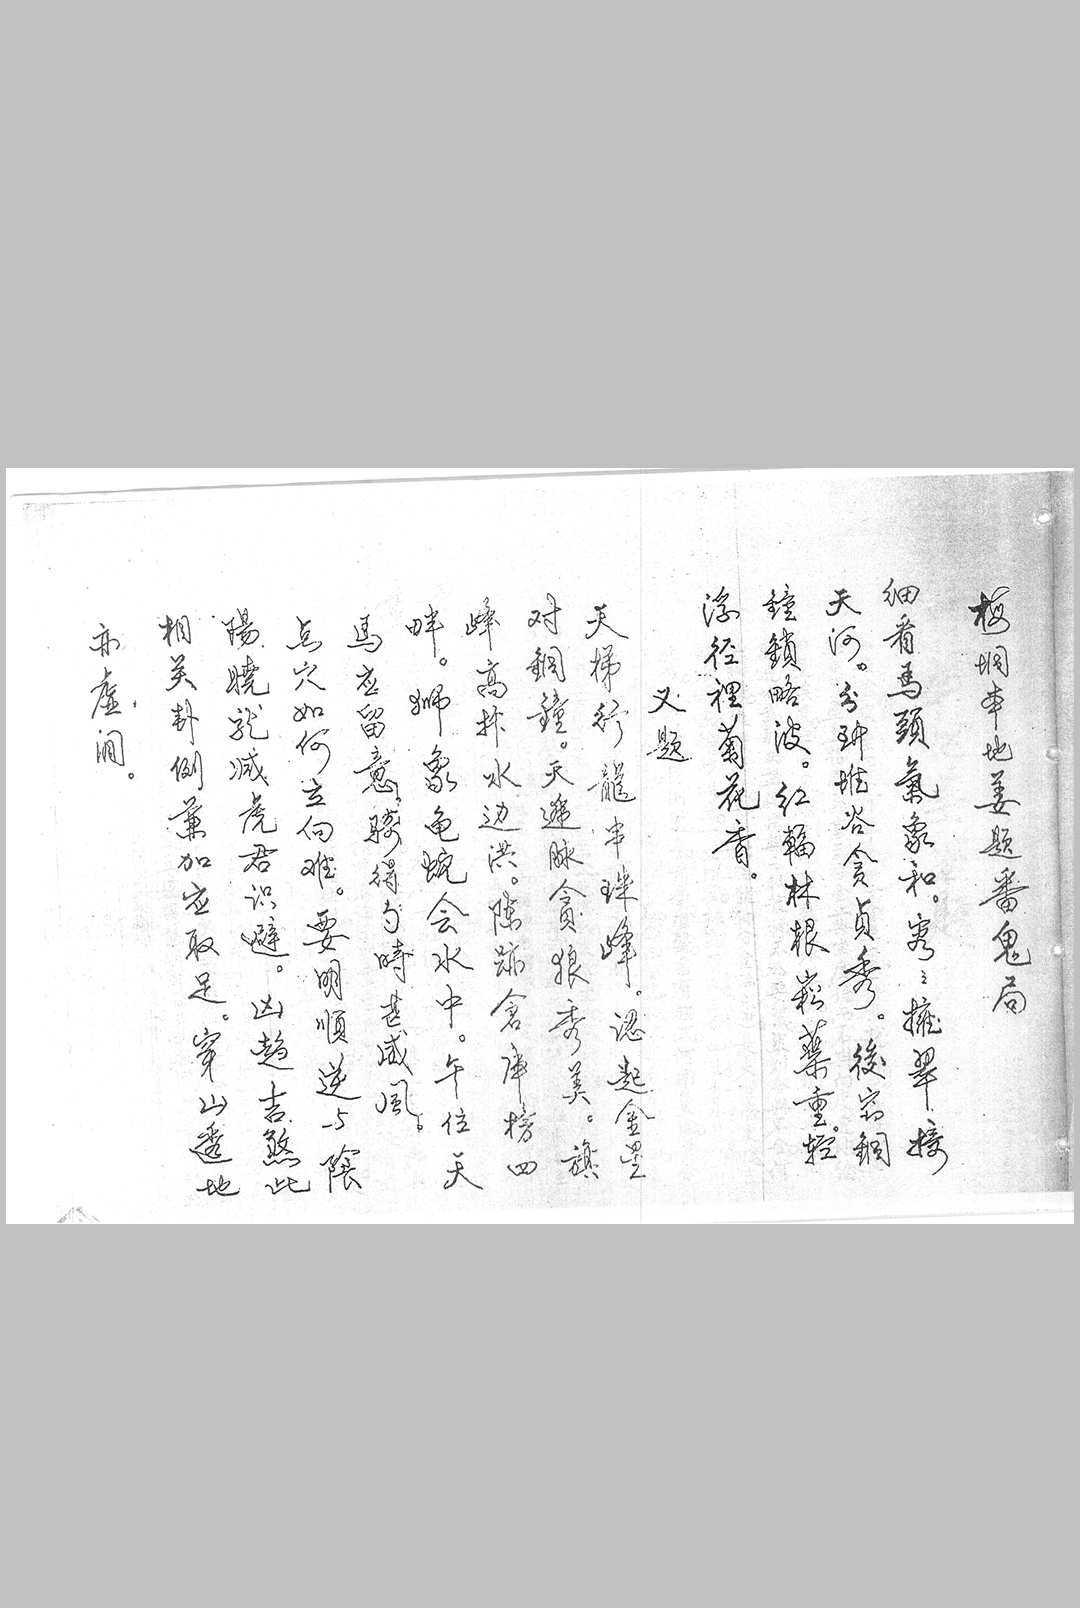 梅垌本地姜題番鬼局
細看馬頭氣象和。寄々擁翠接
天河。分砷堆谷貪貞秀。後宕銅
鐘鎖略波。紅輪林根崧藥重輕
浮徑裡菊花香。
又題
天梯行龍串珠峰。認起金星
对銅鐘。天遊脉貪狼秀美。旗
峰高拃水边洪。陳跡倉庫榜四
畔。獅象龟蛇会水中。午位天
馬应留意。騎得勻時甚威風。
点穴如何立向难。要明順逆与陰
陽。曉龍减虎君识避。凶趋吉煞此
相关卦例兼加应取足。穿山透地
亦虚润。